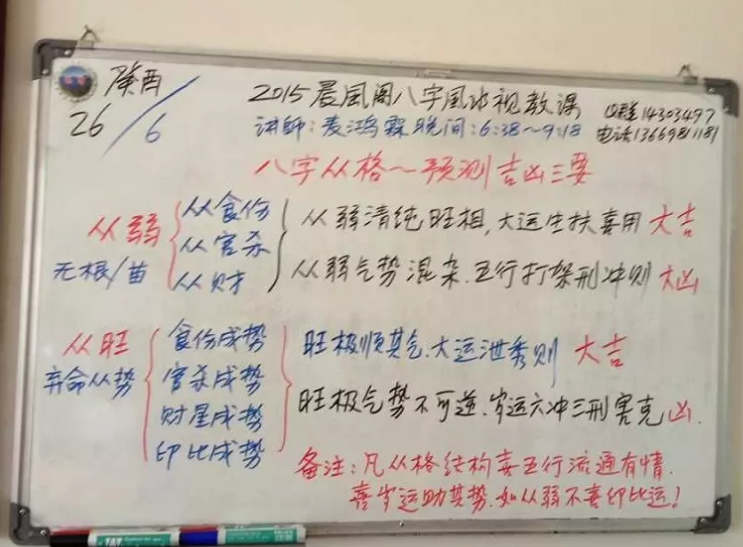 癸酉
26/6
2015晨風阁八字風水视教课
Q群14303497
讲師:麦鸿霖 晚间:6:38~9:18
电话13669811181
八字从格~预测吉凶三要
从弱
无根/苗
从食伤
从官杀
从财
从弱清纯旺相,大运生扶喜用 大吉
从弱气势混杂.五行打架刑冲则 大凶
从旺
弃命从势
食伤成势
官杀成势
财星成势
印比成势
旺极顺其气.大运泄秀则 大吉
旺极气势不可逆.岁运六冲三刑害克 凶.
备注:凡从格结构喜五行流通有情.
喜岁运助其势.如从弱不喜印比运!